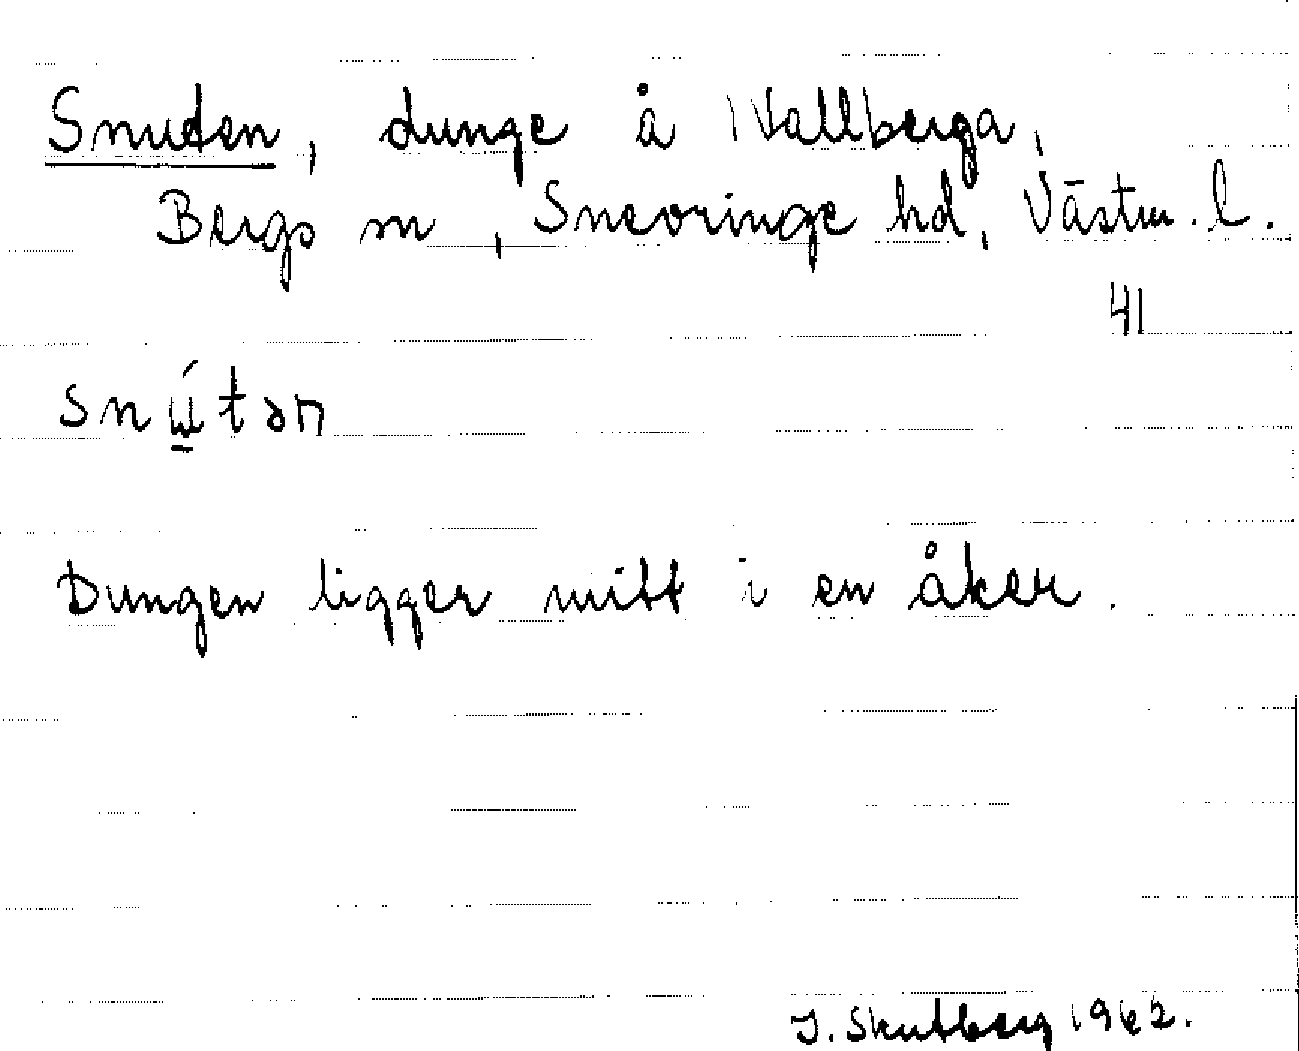 Snuten, dunge å Wallberga,
Bergs sn, Snevringe hd, Västm. l.
41
snɯ́tən
Dungen ligger mitt i en åker.
I. Skutberg 1962.